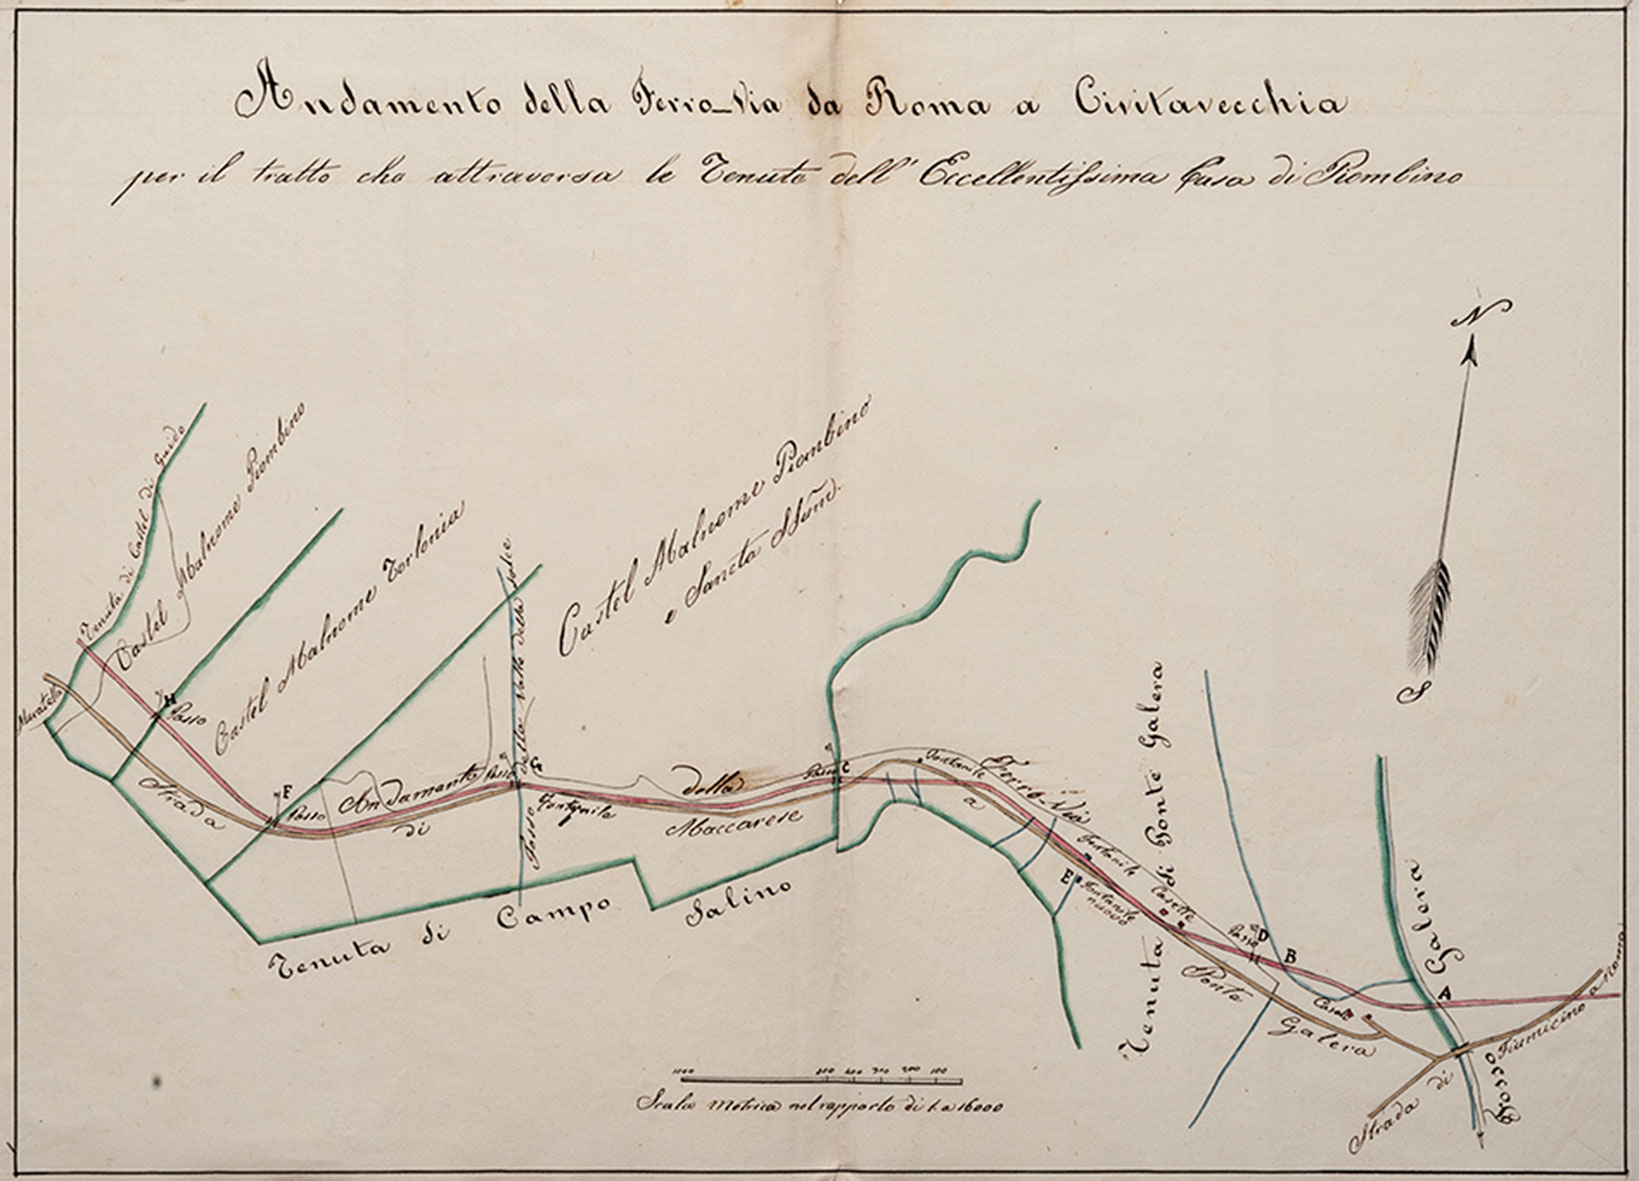 Andamento della Ferro-Via da Roma a Civitavecchia
per il tratto che attraversa le Tenute dell' Eccellentissima Casa di Piombino
N
S
Tenuta di Castel di Guido
Castel Malnome Piombino
Castel Malnome Torlonia
Castel Malnome Piombino
e Sancta SSum.
della Valle della
Muratella
H
Passo
F
Passo
Andamento
Passo
G
della
Passo
C
Fontanile
Ferro-Via
Strada
di
Fontanile
Maccarese
a
Fosso
Fontanile
Casette
E
Fontanile
nuovo
Tenuta di Ponte Galera
Passo
D
B
Ponte
Galera
Casale
A
Galera
Fosso
Strada di Fiumicino a Roma
Tenuta di Campo Salino
1000 500 400 300 200 100
Scala metrica nel rapporto di 1. a 16000